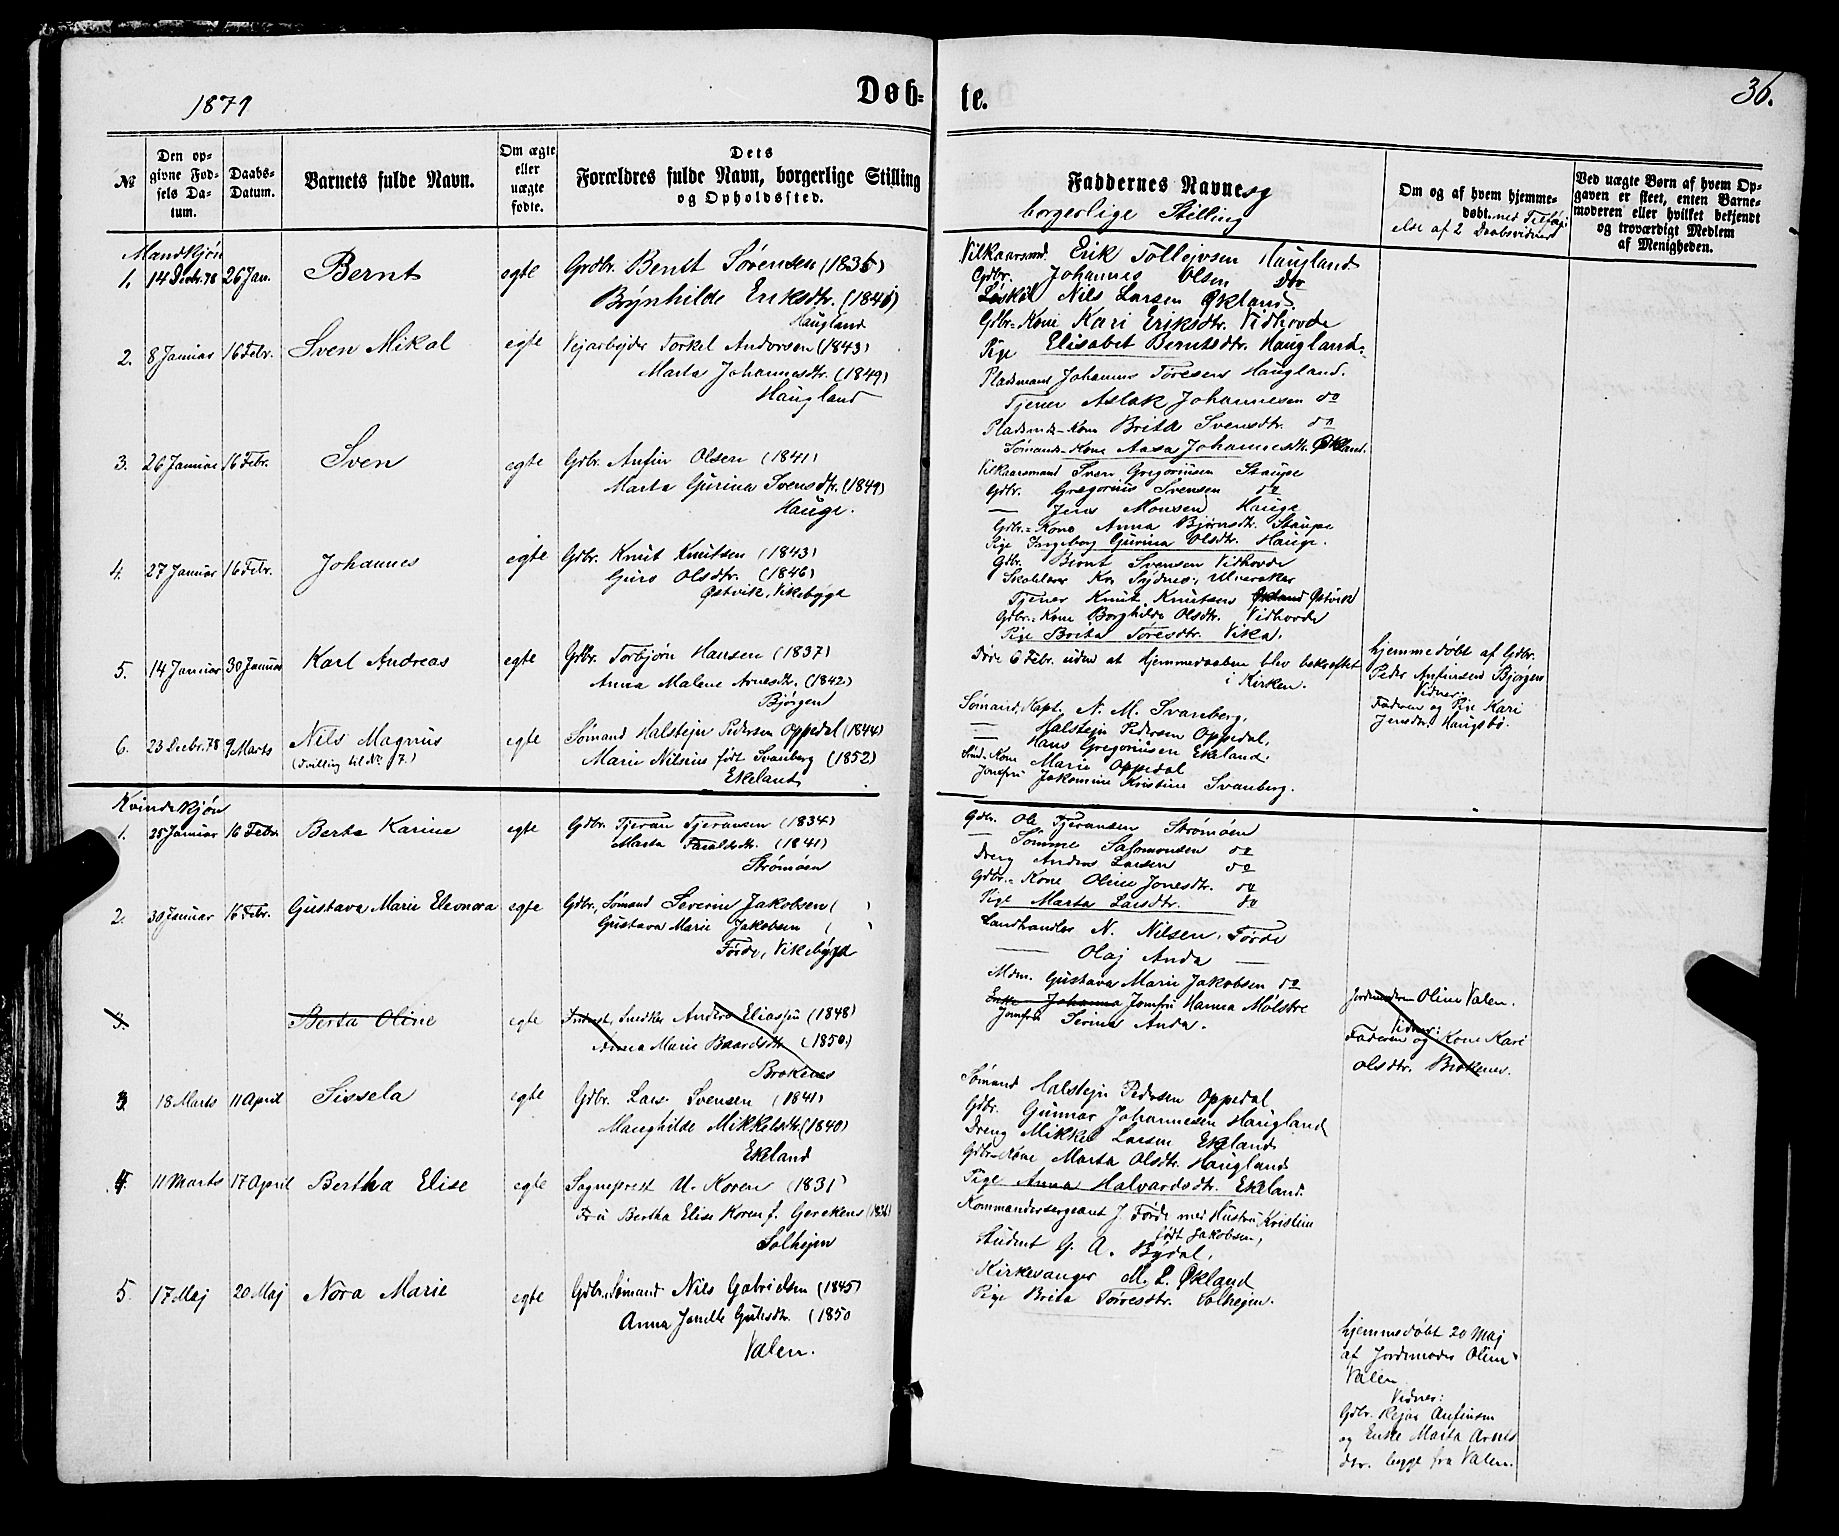 1879
Døb-
te.
36.
№
Den op-
givne Fød-
sels Da-
tum.
Daabs-
Datum.
Barnets fulde Navn.
Om ægte
eller
uægte
fødte.
Dets
Forældres fulde Navn, borgerlige Stilling
og Opholdssted.
Faddernes Navne og
borgerlige Stilling
Om og af hvem hjemme-
døbt. med Tilføj-
else af 2 Daabsvidner
Ved uægte Børn af hvem Op-
gaven er skeet, enten Barne-
moderen eller hvilket bekjendt
og troværdigt Medlem
af Menigheden.
Mandkjøn
1. 14 Decbr. 78 26 Jan. Bernt egte Grdbr. Bentt Sørensen (1836)
Brynhilde Eriksdtr. (1846)
Haugland
Vilkaarsmd. Erik Tollejvsen Haugland
Gdbr. Johannes Olsen do
Løskel Nils Larsen Økland
Gdbr.-Kone Kari Eriksdtr. Vidhovde
Pige Elisabet Berntsdtr. Haugland.
2. 8 Januar 16 Febr. Sven Mikal egte Vejarbejder Torkel Andersen (1843)
Marta Johannesdtr. (1849)
Haugland
Pladsmand Johannes Toresen Haugland.
Tjener Aslak Johannesen do
Pladsmds-Kone Brita Svensdtr. do
Sømands-Kone Aasa Johannesdtr. Økland.
3. 26 Januar 16 Febr. Sven egte Gdbr. Anfin Olsen (1841)
Marta Gurina Svensdtr. (1849)
Hauge.
Vilkaarsmand Sven Gregoriusen Staupe
Gdbr. Gregorius Svensen do
— Jens Monsen Hauge
Gdbr.-Kone Anna Bjørnsdtr. Staupe
Pige Ingeborg Gurina Olsdtr. Hauge.
4. 27 Januar 16 Febr. Johannes egte Gdbr. Knut Knutsen (1843)
Guro Olsdtr. (1846)
Østvik, Vikebygd
Gdbr. Bernt Svensen Vidhovde
Skolelærer Kr. Sydnes, Ulveraker
Tjener Knut Knutsen Økland Østvik
Gdbr.-Kone Borghilde Olsdtr. Vidhovde
Pige Brita Toresdtr. Vika.
5. 14 Januar 30 Januar Karl Andreas egte Gdbr. Torbjørn Hansen (1837)
Anna Malene Arnesdtr. (1842)
Bjørgen
Døde 6 Febr. uden at hjemmedaaben blev bekræftet
i Kirken.
hjemmedøbt af Gdbr.
Peder Anfinsen Bjørgen
Vidner:
Faderen og Pige Kari
Jensdtr. Haugsbø.
6. 23 Decbr. 78 9 Marts Nils Magnus egte Sømand Halstejn Pedersen Oppedal (1844)
(Tvilling til № 7.) Marie Nilsius født Svanberg (1852)
Ekeland
Sømand, Kapt. N. M. Svanberg,
— Halstejn Pedersen Oppedal,
— Hans Gregoriusen Ekeland.
Smd.-Kone Marie Oppedal
Jomfru Jakomine Kristine Svanberg.
Kvindekjøn
1. 25 Januar 16 Febr. Berta Karine egte Gdbr. Tjeran Tjeransen (1834)
Marta Taraldsdtr. (1841)
Strømøen
Gdbr. Ole Tjeransen Strømøen
— Sømme Salomonsen do
Dreng Anders Larsen do
Gdbr.-Kone Oline Jonesdtr. do
Pige Marta Larsdtr. do
2. 30 Januar 16 Febr. Gustava Marie Eleonora egte Gdbr., Sømand Severin Jakobsen ( )
Gustava Marie Jakobsen ( )
Førde, Vikebygd
Landhandler N. Nilsen, Førde
— Olaj Anda —
Mdm. Gustava Marie Jakobsen do
Enke Johanna Jomfru Hanna Molstre
Jomfru Serina Anda.
3. Berta Oline egte Inderst, Snedker Anders Eliassen (1848)
Anna Marie Baardsdtr. (1850)
Brokenes
Jordmoderen Oline Valen.
Vidner:
Faderen og Kone Kari
Olsdtr. Brokenes.
3. 18 Marts 11 April Sissela egte Gdbr. Lars Svensen (1841)
Manghilde Mikkelsdtr. (1840)
Ekeland
Sømand Halstejn Pedersen Oppedal
Gdbr. Gunnar Johannesen Haugland
Dreng Mikkel Larsen Ekeland
Gdbr.-Kone Marta Olsdtr. Haugland
Pige Anna Halvardsdtr. Ekeland.
4. 11 Marts 17 April Bertha Elise egte Sogneprest U. Koren (1831)
Fru Bertha Elise Koren f. Gerckens (1836)
Solhejm
Kommandersergeant J. Førde med Hustru Kristine
født Jakobsen,
Student G. A. Bydal,
Kirkesanger M. L. Økland
Pige Brita Torresdtr. Solhejm.
5. 17 Maj 20 Maj Nora Marie egte Gdbr., Sømand Nils Gabrielsen (1845)
Anna Jonette Gulisdtr. (1850
Valen.
hjemmedøbt 20 Maj
af Jordemoder Oline
Valen
Vidner:
Gdbr. Rejar Anfinsen
og Enke Marta Arnes
dtr. begge fra Valen.